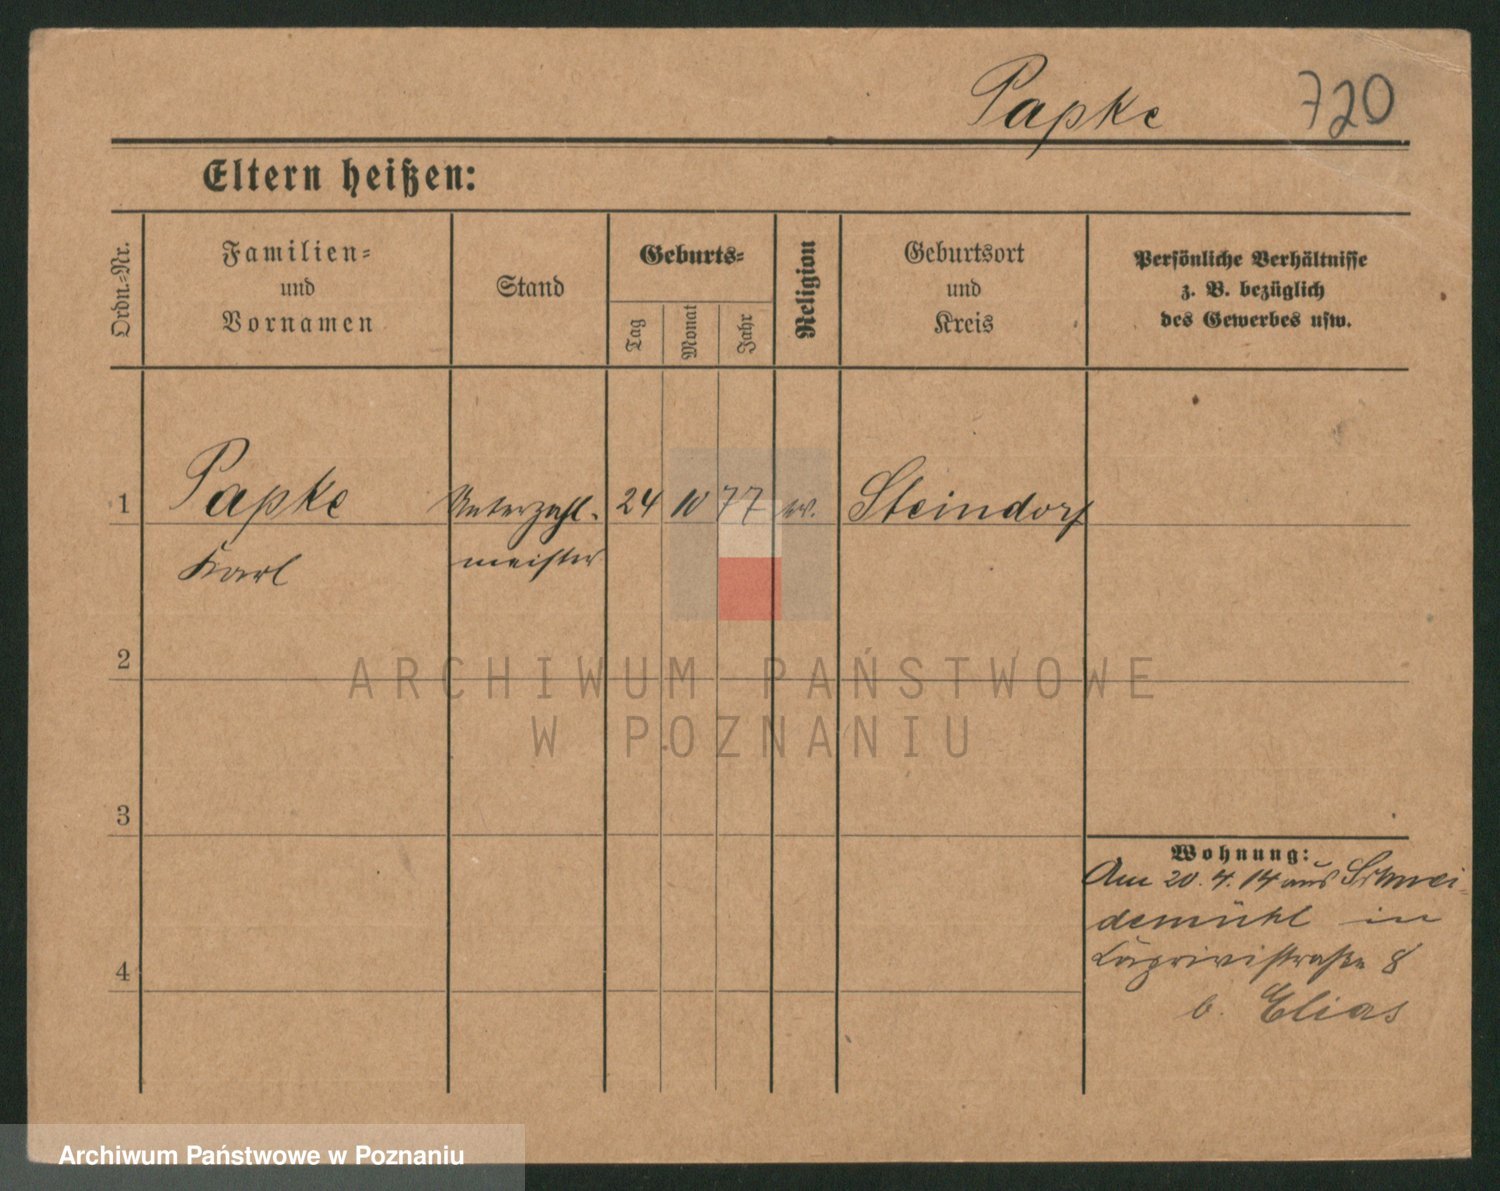 Papke 720
Eltern heißen:
Ordn.=Nr.
Familien=
und
Vornamen
Stand
Geburts=
Tag
Monat
Jahr
Religion
Geburtsort
und
Kreis
Persönliche Verhältnisse
z. B. bezüglich
des Gewerbes usw.
1 Papke Unterzahl- 24 10 77 ev. Steindorf
Karl meister
2
ARCHIWUM PAŃSTWOWE
W POZNANIU
3
Wohnung:
Am 20.4.14 aus Schnei=
demühl in
straße 8
b. Elias
4
Archiwum Państwowe w Poznaniu